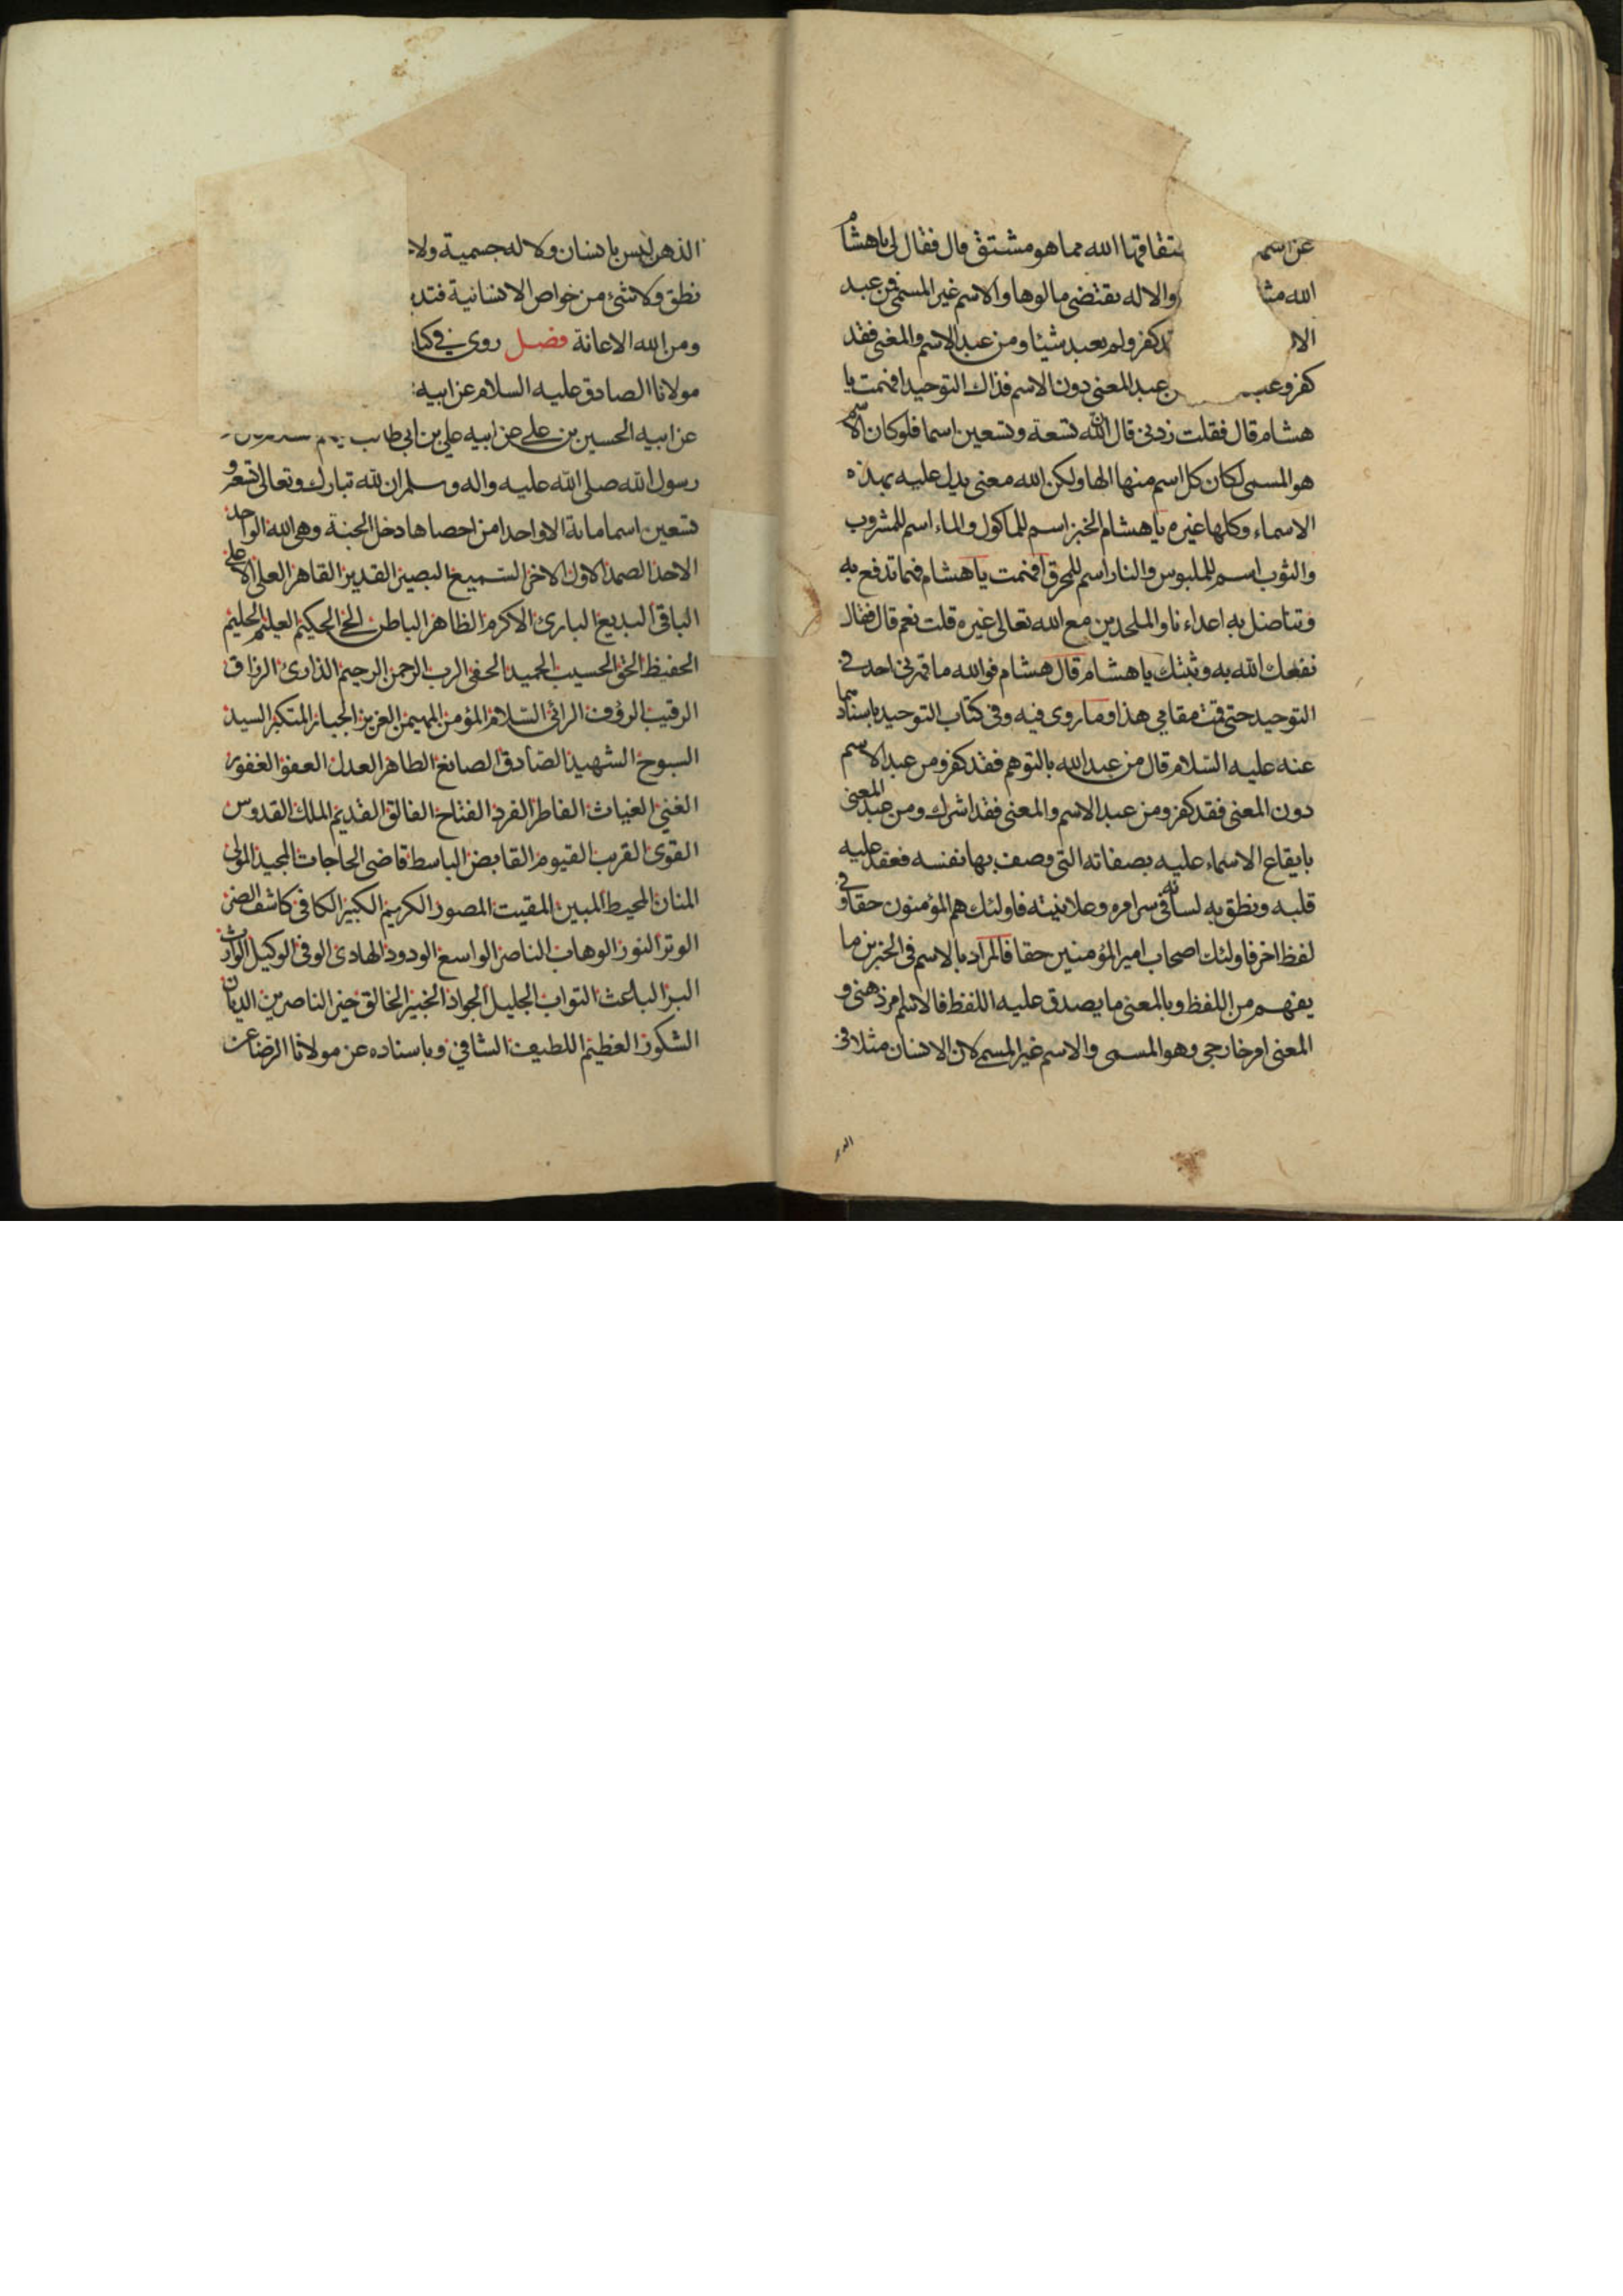 عن اسم ‌ ‌ شتقاقها الله مما هو مشتق قال فقال لى يا هشام
الله مشا ‌ ‌ والاله يقتضى مالوها والاسم غير المسمى فمن عبد
الا ‌ ‌ كفر ولم يعبد شيئا ومن عبد الاسم والمعنى فقد
كفر وعبد ‌ ‌ عبد المعنى دون الاسم فذاك التوحيد افهمت يا
هشام قال فقلت زدنى قال ان لله تسعة وتسعين اسما فلو كان الاسم
هو المسمى لكان كل اسم منها الها ولكن الله معنى يدل عليه بهذه
الاسماء وكلها غيره يا هشام الخبز اسم للماكول والماء اسم للمشروب
والثوب اسم للملبوس والنار اسم للمحرق افهمت يا هشام فهما تدفع به
وتناضل به اعداءنا والملحدين مع الله تعالى غيره قلت نعم قال فقال
نفعك الله به وثبتك يا هشام قال هشام فوالله ما قهرنى احد فى
التوحيد حتى قمت مقامى هذا ومما روى فيه وفى كتاب التوحيد باسناد
عنه عليه السلام قال من عبد الله بالتوهم فقد كفر ومن عبد الاسم
دون المعنى فقد كفر ومن عبد الاسم والمعنى فقد اشرك ومن عبد المعنى
بايقاع الاسماء عليه بصفاته التى وصف بها نفسه فعقد عليه
قلبه ونطق به لسانه فى سر امره وعلانيته فاولئك هم المؤمنون حقا وفى
لفظ اخر فاولئك اصحاب امير المؤمنين حقا فالمراد بالاسم فى الخبرين ما
يفهم من اللفظ وبالمعنى ما يصدق عليه اللفظ فالاسم امر ذهنى و
المعنى امر خارجى وهو المسمى والاسم غير المسمى لان الانسان مثلا فى
الذهن ليس بانسان ولا له جسمية ولا
نطق ولا شئ من خواص الانسانية فتد
ومن الله الاعانة فصل روى فى كتا
مولانا الصادق عليه السلام عن ابيه
عن ابيه الحسين بن على عن ابيه على بن ابى طالب
رسول الله صلى الله عليه واله وسلم ان لله تبارك وتعالى تسعة و
تسعين اسما مائة الا واحدا من احصاها دخل الجنة وهى الله الواحد
الاحد الصمد الاول الاخر السميع البصير القدير القاهر العلى الاعلى
الباقى البديع البارئ الاكرم الظاهر الباطن الحى الحكيم العليم الحليم
الحفيظ الحق الحسيب الحميد الحفى الرب الرحمن الرحيم الذارئ الرزاق
الرقيب الرؤف الرائى السلام المؤمن المهيمن العزيز الجبار المتكبر السيد
السبوح الشهيد الصادق الصانع الطاهر العدل العفو الغفور
الغنى الغياث الفاطر الفرد الفتاح الفالق القديم الملك القدوس
القوى القريب القيوم القابض الباسط قاضى الحاجات المجيد المولى
المنان المحيط المبين المقيت المصور الكريم الكبير الكافى كاشف الضر
الوتر النور الوهاب الناصر الواسع الودود الهادى الوفى الوكيل الوارث
البر الباعث التواب الجليل الجواد الخبير الخالق خير الناصرين الديان
الشكور العظيم اللطيف الشافى وباسناده عن مولانا الرضا عن